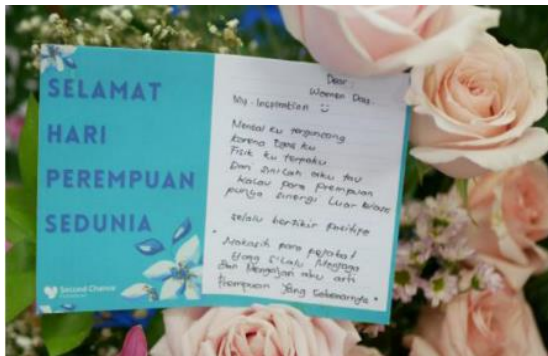 SELAMAT
HARI
PEREMPUAN
SEDUNIA
Second Chance
Dear :
Women Day.
My Inspiration
Mental ku terguncang
karena
Fisik ku terpaku
Dan sinilah aku tau
kalau para perempuan
punya sinergi Luar biasa
selalu berfikir positipe
" Makasih para pejabat
yang s'lalu Menjaga
dan Mengajari aku arti
Perempuan Yang Sebenarnya "